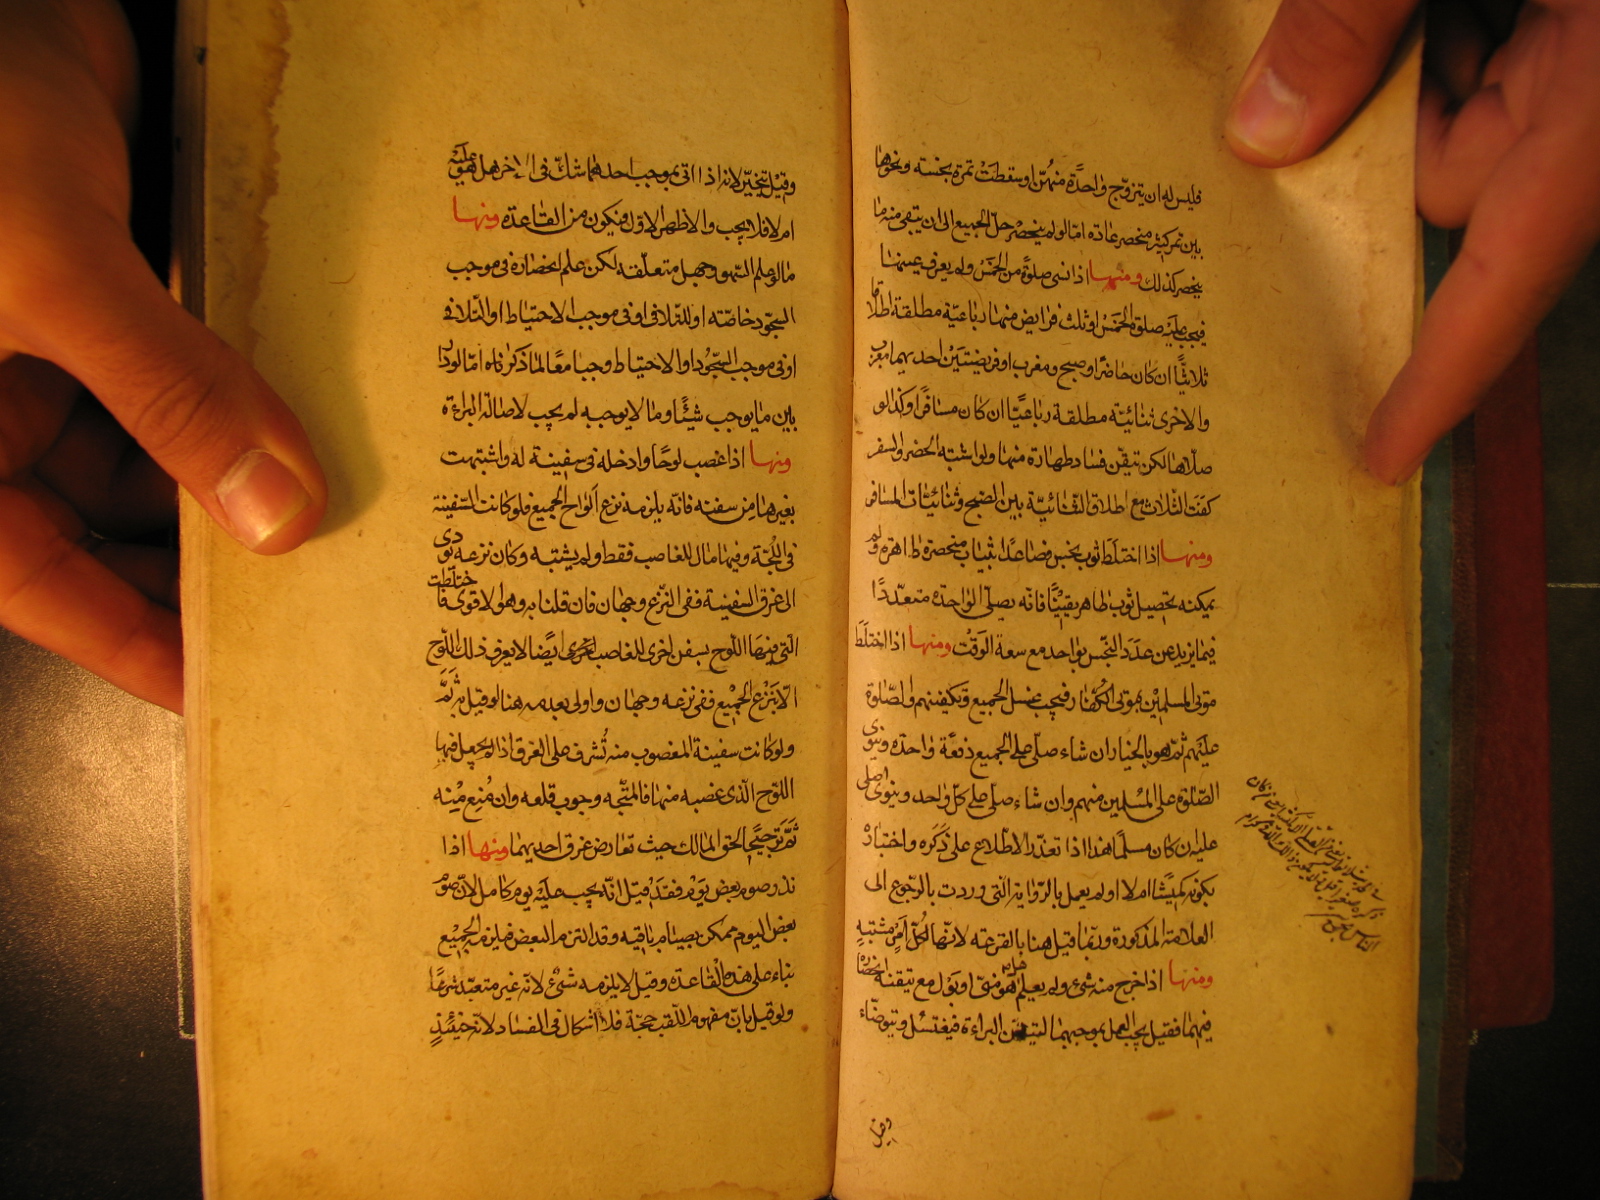 فليس له ان يتزوّج واحدة منهنّ او سقطت تمرة نجسة ونحوها
بين تمر كثير منحصر عادة امّا لو لم ينحصر حلّ الجميع الى ان يبقى منه ما
ينحصر كذلك ومنها اذا نسى صلوة من الخمس ولم يعرف عينها
فيجب عليه صلوة الخمس او ثلث فرايض منها رباعيّة مطلقة اطلاقا
ثلاثيّا ان كان حاضرا وصبح ومغرب او فريضتين احديهما مغرب
والاخرى ثنائية مطلقة رباعيّا ان كان مسافرا وكذا لو
صلّاها لكن تيقّن فساد طهارة منها ولو اشتبه الحضر والسفر
كفت الثلاث مع اطلاق الثنائيّة بين الصّبح وثنائيّات المسافر
ومنها اذا اختلط ثوب نجس فصاعدا بثياب منحصرة طاهرة ولم
يمكنه تحصيل ثوب طاهر يقينّا فانّه يصلّى الواحدة متعدّدا
فيما يزيد عن عدد النّجس بواحد مع سعة الوقت ومنها اذا اختلط
موتى المسلمين بموتى الكفّار فيجب غسل الجميع وتكفينهم والصّلوة
عليهم ثمّ هو بالخيار ان شاء صلّى على الجميع دفعة واحدة وينوى
الصّلوة على المسلمين منهم وان شاء صلّى على كلّ واحد وينوى اصلى
عليه ان كان مسلما هذا اذا تعذّر الاطّلاع على ذكره واختباره
بكونه كميشا ام لا او لم يعمل بالرّواية الّتى وردت بالرّجوع الى
العلامة المذكورة وربّما قيل هنا بالقرعة لانّها لكلّ امر مشتبه
ومنها اذا خرج منه شىء ولم يعلم هل هو منى او بول مع تيقنه انحصاره
فيهما فقيل يجب العمل بموجبهما لتيقّن البراءة فيغتسل ويتوضّاء
وقيل
وقيل يتخيّر لانه اذا اتى بموجب احدهما شكّ فى الاخر هل هو عليه
ام لا فلا يجب والاظهر الاوّل فيكون من القاعدة ومنها
ما لو علم السّهو وجهل متعلّقه لكن علم انحصاره فى موجب
السجود خاصّة او للتّلافى او فى موجب الاحتياط او التّلافى
او فى موجب السّجود او الاحتياط وجبا معا لما ذكرناه امّا لو دار
بين ما يوجب شيئا وما لا يوجبه لم يجب لاصالة البراءة
ومنها اذا غصب لوحا وادخله فى سفينة له واشتبهت
بغيرها من سفنه فانّه يلزمه نزع الواح الجميع فلو كانت السّفينة
فى اللجّة وفيها مال للغاصب فقط ولم يشتبه وكان نزعه يودى
الى غرق السّفينة ففى النّزع وجهان فان قلنا به وهو الاقوى فاختلطت
الّتى فيها اللّوح بسفن اخرى للغاصب ايضا لا يعرف ذلك اللّوح
الّا بنزع الجميع ففى نزعه وجهان واولى بعدمه هنا لو قيل به ثمّ
ولو كانت سفينة المغصوب منه تُشرف على الغرق اذا لم يجعل فيها
اللوح الّذى غصبه منها فالمتّجه وجوب قلعه وان مُنع منه
ثَمّ ترجيحا لحق المالك حيث تعارض غرق احديهما ومنها اذا
نذر صوم بعض يوم فقد قيل انّه يجب عليه يوم كامل لانّ صوم
بعض اليوم ممكن بصيام باقيه وقد التزم البعض فيلزمه الجميع
بناء على هذه القاعدة وقيل لا يلزمه شىء لانّه غير متعبّد شرعا
ولو قيل بانّ مفهوم اللّقب حجّة فلا اشكال فى الفساد لانّه حينئذٍ